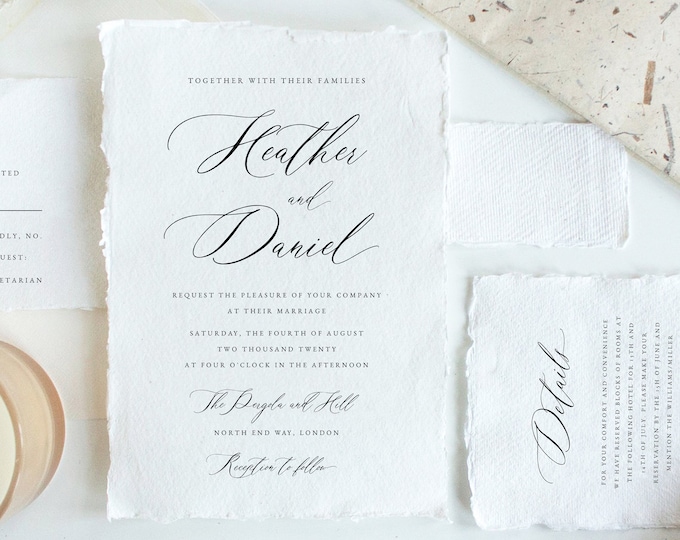 TOGETHER WITH THEIR FAMILIES
Heather
and
Daniel
REQUEST THE PLEASURE OF YOUR COMPANY
AT THEIR MARRIAGE
SATURDAY, THE FOURTH OF AUGUST
TWO THOUSAND TWENTY
AT FOUR O'CLOCK IN THE AFTERNOON
The Pergola and Hill
NORTH END WAY, LONDON
Reception to follow
Details
FOR YOUR COMFORT AND CONVENIENCE
WE HAVE RESERVED BLOCKS OF ROOMS AT
THE FOLLOWING HOTEL FOR 13TH AND
14TH OF JULY. PLEASE MAKE YOUR
RESERVATION BY THE 25TH OF JUNE AND
MENTION THE WILLIAMS/MILLER
NO.